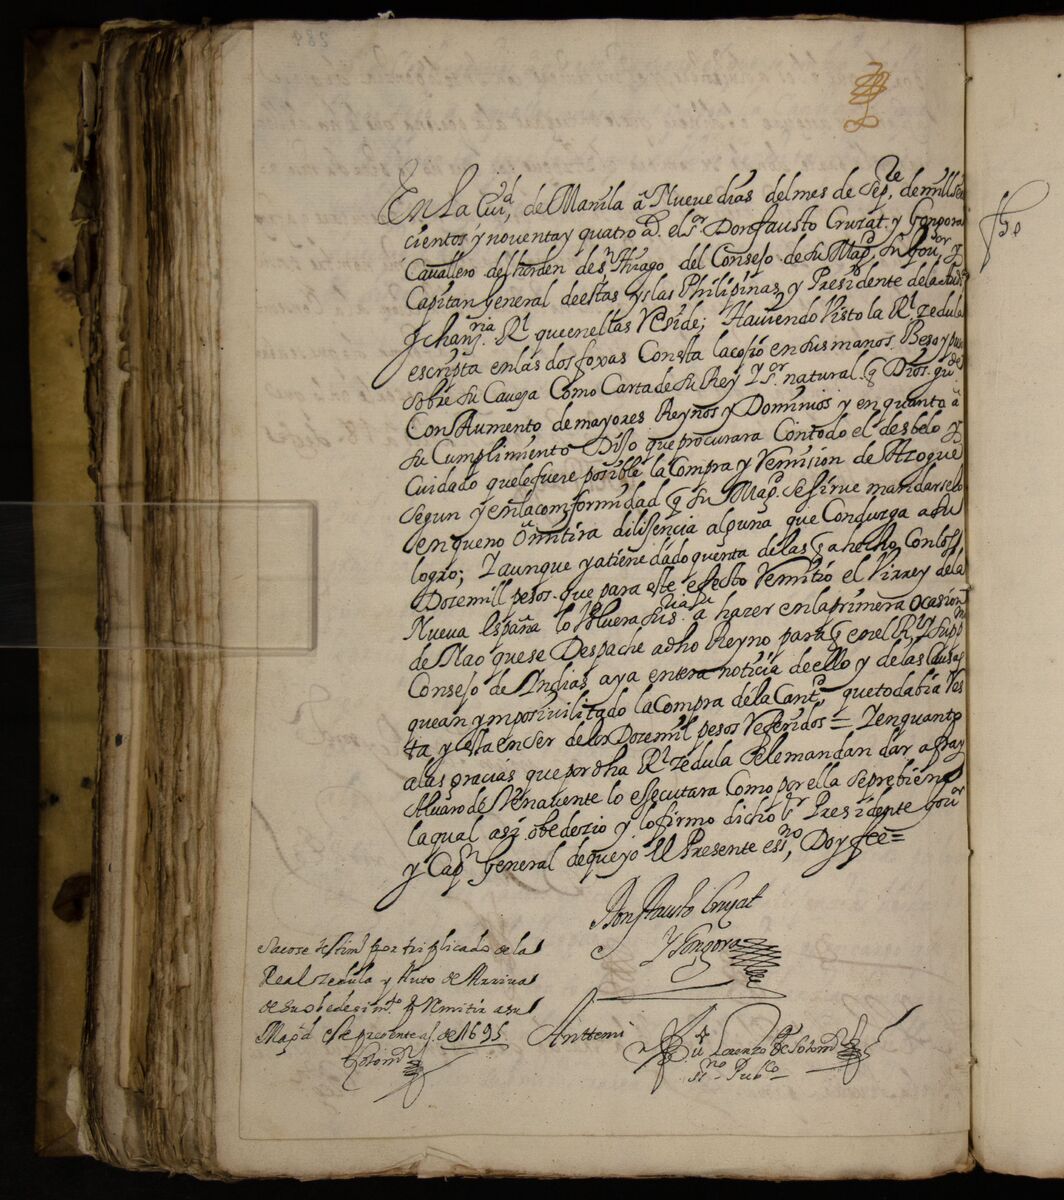 En la Ciud, de Manila â Nueve dias del mes de Sepre, de mill seis
cientos y noventa y quatro as. el sr Don fausto Cruzat, y Gongora
Cavallero del horden de sn thiago del Consejo de su Magd, su Gouor y
Capitan General de estas yslas Philipinas, y Presidente de la Auda
y chanria. Rl que en ellas Reside; Haviendo visto la Rl zedula
escripta en las dos foxas Con esta la cojio en sus manos. Beso y puso
sobre su Caveza Como Carta de su Rey y sor natural. q Dios, gude
Con Aumento de mayores Reynos y Dominios y en quanto â
su Cumplimiento Dijo que procurara Con todo el desbelo y
Cuidado que le fuere posible la Compra y Remision de Azogue
segun y en la comformidad q su Magd. se sirve mandarselo
en que no ômitira dilijencia alguna que Conduzga a su
logro; Y aunque ya tiene dado quenta de las q a hecho Con los
Doze mill pesos. que para este efecto Remitio el Virrey de la
Nueva españa lo bolvera su sria a hazer en la primera ocasion
de Nao que se Despache a dho Reyno para q en el Rl y Supmo
Consejo de Indias aya entera noticia de ello y de las Causas
que an ymposivilitado la Compra de la Cantd, que todabia Res
ta y esta en ser de los Doze mil pesos Referidos = Y en quanto
a las gracias que por dha Rl zedula se le mandan dar a fray
Alvaro de Venavente lo ejecutara Como por ella se prebiene
la qual asi obedezio y lo firmo dicho sr Presidente Gour
y Capn General de que yo el Presente essno, Doy fee =
Don fausto Cruzat
Y Gongora
Sacose testimo por triplicado de la
Real zedula y Auto de Arriva
de su obedezimto y Remitir a su
Magd este presente as. de 1695.
Sotomr
Anttemi
Lorenzo de Sotomr
ssno Pubco
fho
284